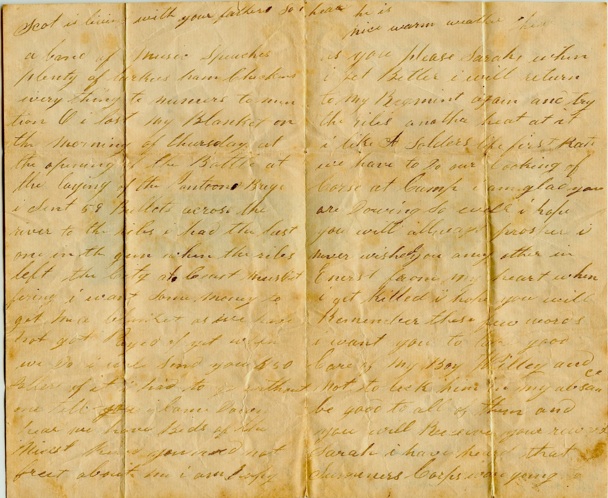 Scot is living with your father so i hear he is
nice warm weather here
a band of music Speaches
plenty of turkies ham Chickens
every thing to numers to men
tion O i lost my Blanket on
the morning of thursday at
the opening of the Battle at
the laying of the Pontoons Brige
i sent 58 Bullets across the
river to the rebs i had the last
one in the gun when the rebs
left the City at least musket
firing i want some money to
get me a blanket as we have
not got Payed if yet when
we do i will send you $50
there of it i had to go without
one till
here we have Beds of
you need not
fret about me i am
as you please Sarah when
i get Better i will return
to my Regiment again and try
the rebs another heat at it
i like A Solders life first rate
we have to do our Cooking of
Corse at Camp i am glad you
are Dowing so well i hope
you will always prosper i
never wished you any other in
Enerst from my heart when
i get killed i hope you will
Remember these few words
i want you to be good
Care of my Boy Willey and
not to lick him in my absance
be good to all of them and
you will Receive your reward
Sarah i have heard that
Sumners Corps was going